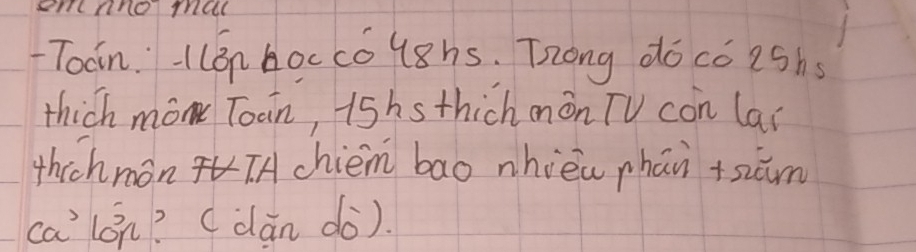 em nhỏ mai
-Toán: 1 lớp học có 48hs. Trong đó có 25hs
thích môn Toán, 15hs thích môn TV còn lại
thích môn TA chiếm bao nhiêu phần trăm
cả lớp? (dặn dò).